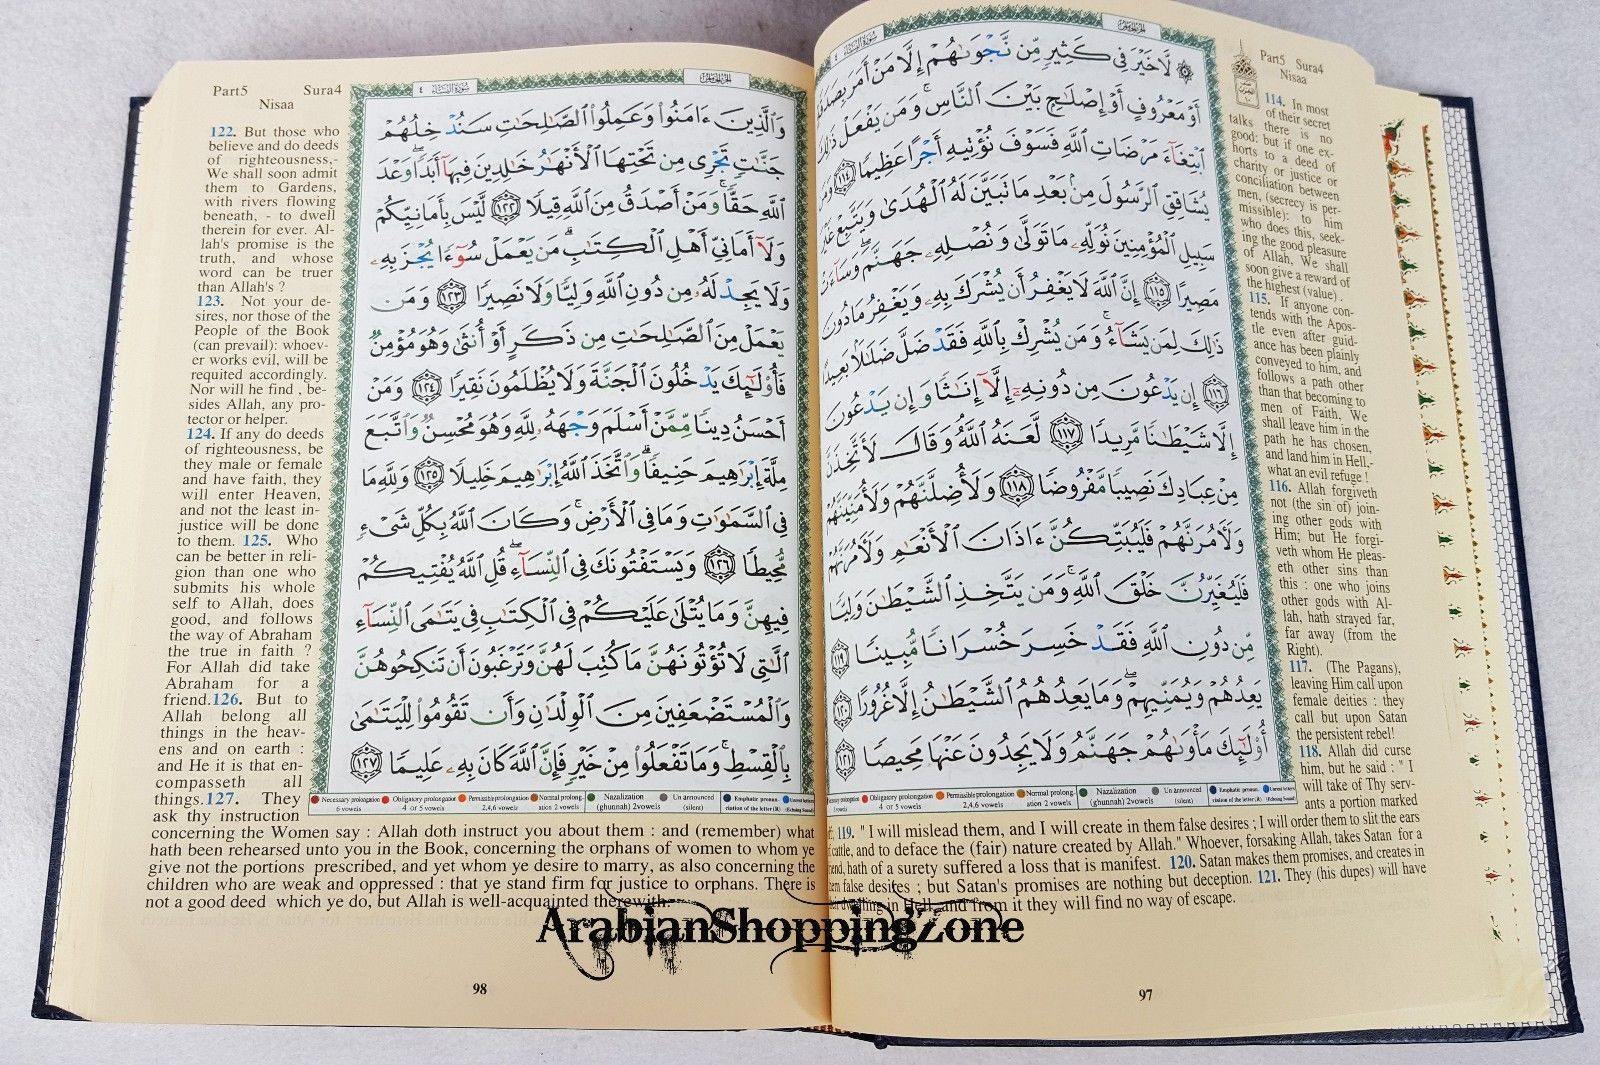 Part5 Sura4
Nisaa
114. In most
of their secret
talks there is no
good: but if one ex-
horts to a deed of
charity or justice or
conciliation between
men, (secrecy is per-
missible): to him
who does this, seek-
ing the good pleasure
of Allah, We shall
soon give a reward of
the highest (value) .
115. If anyone con-
tends with the Apos-
tle even after guid-
ance has been plainly
conveyed to him, and
follows a path other
than that becoming to
men of Faith, We
shall leave him in the
path he has chosen,
and land him in Hell,-
what an evil refuge !
116. Allah forgiveth
not (the sin of) join-
ing other gods with
Him; but He forgi-
veth whom He pleas-
eth other sins than
this : one who joins
other gods with Al-
lah, hath strayed far,
far away (from the
Right).
117. (The Pagans),
leaving Him call upon
female deities : they
call but upon Satan
the persistent rebel!
118. Allah did curse
him, but he said : " I
will take of Thy serv-
ants a portion marked
119. " I will mislead them, and I will create in them false desires ; I will order them to slit the ears
cattle, and to deface the (fair) nature created by Allah." Whoever, forsaking Allah, takes Satan for a
hath of a surety suffered a loss that is manifest. 120. Satan makes them promises, and creates in
false desires ; but Satan's promises are nothing but deception. 121. They (his dupes) will have
in Hell, and from it they will find no way of escape.
97
لَّا خَيْرَ فِي كَثِيرٍ مِّن نَّجْوَىٰهُمْ إِلَّا مَنْ أَمَرَ
أَوْ مَعْرُوفٍ أَوْ إِصْلَٰحٍۭ بَيْنَ ٱلنَّاسِ ۚ وَمَن يَفْعَلْ
ٱبْتِغَآءَ مَرْضَاتِ ٱللَّهِ فَسَوْفَ نُؤْتِيهِ أَجْرًا عَظِيمًا ١١٤
يُشَاقِقِ ٱلرَّسُولَ مِنۢ بَعْدِ مَا تَبَيَّنَ لَهُ ٱلْهُدَىٰ وَيَتَّبِعْ
سَبِيلِ ٱلْمُؤْمِنِينَ نُوَلِّهِۦ مَا تَوَلَّىٰ وَنُصْلِهِۦ جَهَنَّمَ ۖ
مَصِيرًا ١١٥ إِنَّ ٱللَّهَ لَا يَغْفِرُ أَن يُشْرَكَ بِهِۦ وَيَغْفِرُ مَا دُونَ
ذَٰلِكَ لِمَن يَشَآءُ ۚ وَمَن يُشْرِكْ بِٱللَّهِ فَقَدْ ضَلَّ ضَلَٰلًۢا بَعِيدًا
١١٦ إِن يَدْعُونَ مِن دُونِهِۦٓ إِلَّآ إِنَٰثًا وَإِن يَدْعُونَ
إِلَّا شَيْطَٰنًا مَّرِيدًا ١١٧ لَّعَنَهُ ٱللَّهُ ۘ وَقَالَ لَأَتَّخِذَنَّ
مِنْ عِبَادِكَ نَصِيبًا مَّفْرُوضًا ١١٨ وَلَأُضِلَّنَّهُمْ وَلَأُمَنِّيَنَّهُمْ
وَلَءَامُرَنَّهُمْ فَلَيُبَتِّكُنَّ ءَاذَانَ ٱلْأَنْعَٰمِ وَلَءَامُرَنَّهُمْ
فَلَيُغَيِّرُنَّ خَلْقَ ٱللَّهِ ۚ وَمَن يَتَّخِذِ ٱلشَّيْطَٰنَ وَلِيًّا
مِّن دُونِ ٱللَّهِ فَقَدْ خَسِرَ خُسْرَانًا مُّبِينًا ١١٩
يَعِدُهُمْ وَيُمَنِّيهِمْ ۖ وَمَا يَعِدُهُمُ ٱلشَّيْطَٰنُ إِلَّا غُرُورًا ١٢٠
أُو۟لَٰٓئِكَ مَأْوَىٰهُمْ جَهَنَّمُ وَلَا يَجِدُونَ عَنْهَا مَحِيصًا ١٢١
Part5 Sura4
Nisaa
122. But those who
believe and do deeds
of righteousness,-
We shall soon admit
them to Gardens,
with rivers flowing
beneath, - to dwell
therein for ever. Al-
lah's promise is the
truth, and whose
word can be truer
than Allah's ?
123. Not your de-
sires, nor those of the
People of the Book
(can prevail): whoev-
er works evil, will be
requited accordingly.
Nor will he find , be-
sides Allah, any pro-
tector or helper.
124. If any do deeds
of righteousness, be
they male or female
and have faith, they
will enter Heaven,
and not the least in-
justice will be done
to them. 125. Who
can be better in reli-
gion than one who
submits his whole
self to Allah, does
good, and follows
the way of Abraham
the true in faith ?
For Allah did take
Abraham for a
friend.126. But to
Allah belong all
things in the heav-
ens and on earth :
and He it is that en-
compasseth all
things.127. They
ask thy instruction
concerning the Women say : Allah doth instruct you about them : and (remember) what
hath been rehearsed unto you in the Book, concerning the orphans of women to whom ye
give not the portions prescribed, and yet whom ye desire to marry, as also concerning the
children who are weak and oppressed : that ye stand firm for justice to orphans. There is
not a good deed which ye do, but Allah is well-acquainted therewith.
98
سُورَةُ النِّسَاء ٤
وَٱلَّذِينَ ءَامَنُوا۟ وَعَمِلُوا۟ ٱلصَّٰلِحَٰتِ سَنُدْخِلُهُمْ
جَنَّٰتٍ تَجْرِى مِن تَحْتِهَا ٱلْأَنْهَٰرُ خَٰلِدِينَ فِيهَآ أَبَدًا ۖ وَعْدَ
ٱللَّهِ حَقًّا ۚ وَمَنْ أَصْدَقُ مِنَ ٱللَّهِ قِيلًا ١٢٢ لَّيْسَ بِأَمَانِيِّكُمْ
وَلَآ أَمَانِىِّ أَهْلِ ٱلْكِتَٰبِ ۗ مَن يَعْمَلْ سُوٓءًا يُجْزَ بِهِۦ
وَلَا يَجِدْ لَهُۥ مِن دُونِ ٱللَّهِ وَلِيًّا وَلَا نَصِيرًا ١٢٣ وَمَن
يَعْمَلْ مِنَ ٱلصَّٰلِحَٰتِ مِن ذَكَرٍ أَوْ أُنثَىٰ وَهُوَ مُؤْمِنٌ
فَأُو۟لَٰٓئِكَ يَدْخُلُونَ ٱلْجَنَّةَ وَلَا يُظْلَمُونَ نَقِيرًا ١٢٤ وَمَنْ
أَحْسَنُ دِينًا مِّمَّنْ أَسْلَمَ وَجْهَهُۥ لِلَّهِ وَهُوَ مُحْسِنٌ وَٱتَّبَعَ
مِلَّةَ إِبْرَٰهِيمَ حَنِيفًا ۗ وَٱتَّخَذَ ٱللَّهُ إِبْرَٰهِيمَ خَلِيلًا ١٢٥ وَلِلَّهِ مَا
فِى ٱلسَّمَٰوَٰتِ وَمَا فِى ٱلْأَرْضِ ۚ وَكَانَ ٱللَّهُ بِكُلِّ شَىْءٍ
مُّحِيطًا ١٢٦ وَيَسْتَفْتُونَكَ فِى ٱلنِّسَآءِ ۖ قُلِ ٱللَّهُ يُفْتِيكُمْ
فِيهِنَّ وَمَا يُتْلَىٰ عَلَيْكُمْ فِى ٱلْكِتَٰبِ فِى يَتَٰمَى ٱلنِّسَآءِ
ٱلَّٰتِى لَا تُؤْتُونَهُنَّ مَا كُتِبَ لَهُنَّ وَتَرْغَبُونَ أَن تَنكِحُوهُنَّ
وَٱلْمُسْتَضْعَفِينَ مِنَ ٱلْوِلْدَٰنِ وَأَن تَقُومُوا۟ لِلْيَتَٰمَىٰ
بِٱلْقِسْطِ ۚ وَمَا تَفْعَلُوا۟ مِنْ خَيْرٍ فَإِنَّ ٱللَّهَ كَانَ بِهِۦ عَلِيمًا ١٢٧
Necessary prolongation 6 vowels
Obligatory prolongation 4 or 5 vowels
Permissible prolongation 2,4,6 vowels
Normal prolongation 2 vowels
Nazalization (ghunnah) 2 vowels
Un announced (silent)
ArabianShoppingZone